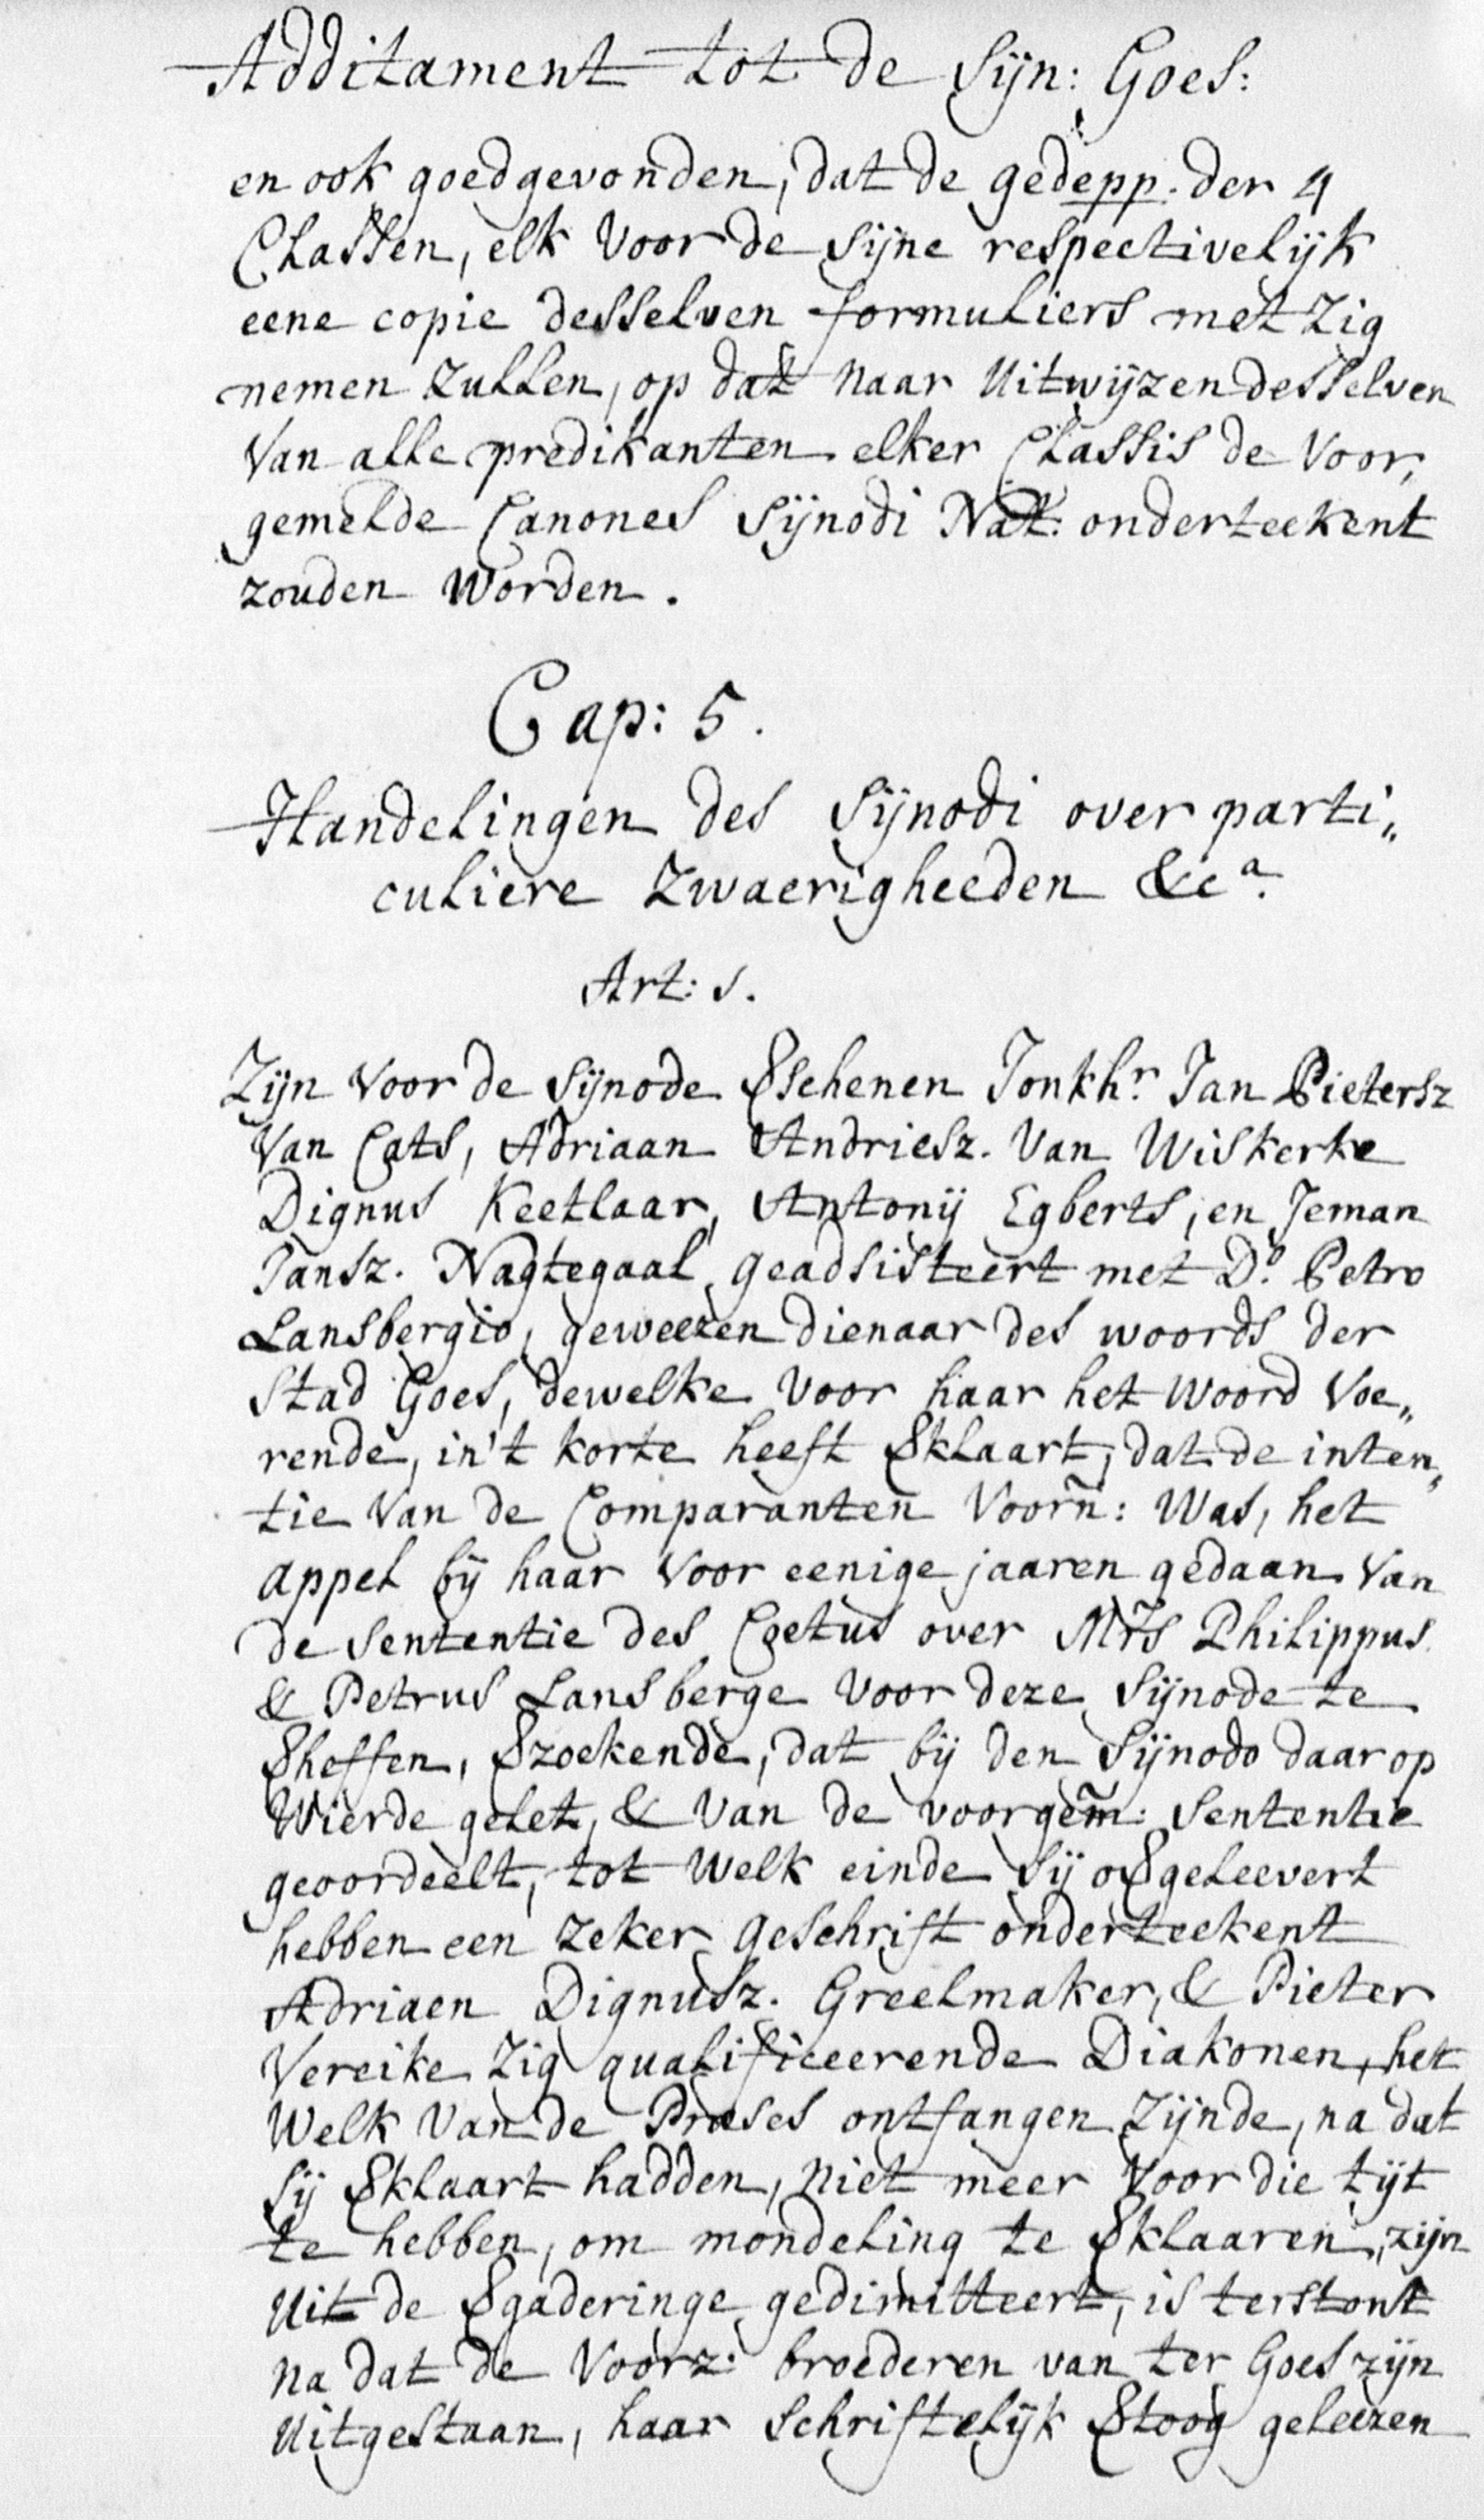 Additament tot de Sijn: Goes:
en ook goedgevonden, dat de gedepp. der 4
Classen, elk voor de sijne respectivelijk
eene copie desselven formuliers met zig
nemen zullen, op dat naar uitwijzen desselven
van alle predikanten elker Classis de voor„
gemelde Canones Sijnodi Nat: onderteekent
zouden worden.
Cap: 5.
Handelingen des Sijnodi over parti„
culiere zwaerigheeden &ca.
Art: 1.
Zijn voor de Sijnode Sschenen Jonkhr. Jan Pietersz
van Cats, Adriaan Andriesz. van Wiskerke
Dignus Keetlaar, Antonij Egberts, en Jeman
Jansz. Nagtegaal, geadsisteert met Do. Petro
Lansbergio, geweezen dienaar des woords der
Stad Goes, dewelke voor haar het woord voe„
rende, in't korte heeft Sklaart, dat de inten„
tie van de Comparanten voorñ: was, het
appel bij haar voor eenige jaaren gedaan van
de sententie des Coetus over Mrs Philippus
& Petrus Lansberge voor deze Sijnode te
Sheffen, Szoekende, dat bij den Sijnodo daar op
wierde gelet, & van de voorgem̃: sententie
geoordeelt, tot welk einde sij oSgeleevert
hebben een zeker geschrift onderteekent
Adriaen Dignusz. Greelmaker, & Pieter
Vereike zig qualificeerende Diakonen, het
welk van de Præses ontfangen zijnde, na dat
sij Sklaart hadden, niet meer voor die tijt
te hebben, om mondeling te Sklaaren, zijn
uit de Sgaderinge gedimitteert, is terstont
na dat de voorz: broederen van ter Goes zijn
uitgestaan, haar schriftelijk Stoog geleezen